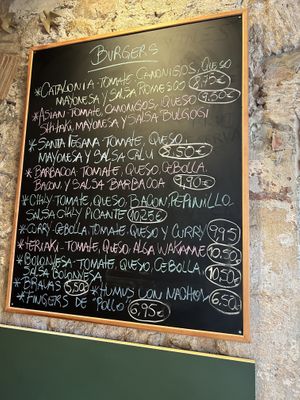 BURGERS
*CATALONIA-TOMATE, CANONIGOS, QUESO
MAYONESA Y SALSA ROMESCO 8,95€
*ASIAN-TOMATE, CANONIGOS, QUESO 9,50€
SHIITAKI, MAYONESA Y SALSA BULGOGI
*SANTA VEGANA-TOMATE, QUESO,
MAYONESA Y SALSA 8,50€
*BARBACOA-TOMATE, QUESO, CEBOLLA,
BACON Y SALSA BARBACOA 9,90€
*CHILY-TOMATE, QUESO, BACON, PEPINILLO
SALSA CHILY PICANTE 10,25€
*CURRY-CEBOLLA TOMATE, QUESO Y CURRY 9,95
*TERIAKI-TOMATE, QUESO, ALGA WAKAME 10,50
*BOLOÑESA-TOMATE, QUESO, CEBOLLA,
SALSA BOLOÑESA 10,50
*BRAVAS 5,50 *HUMUS CON NACHOS 6,50
*FINGERS DE POLLO 6,95€